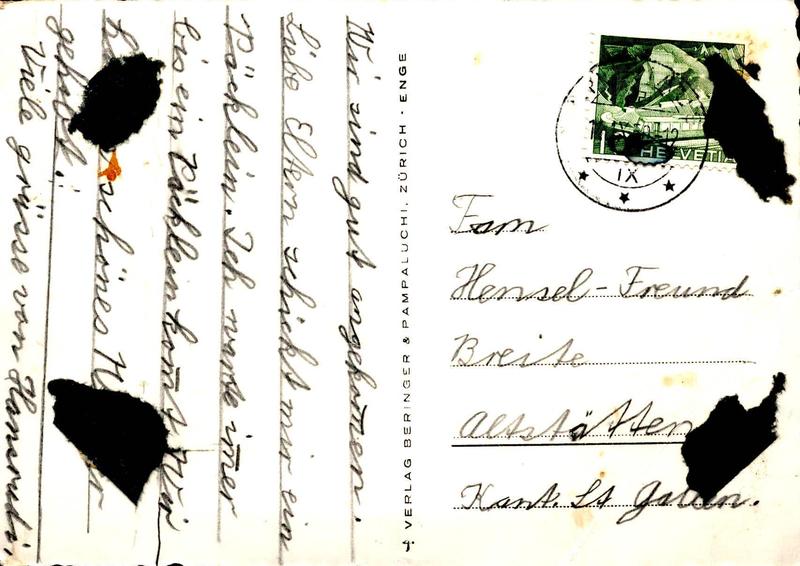 Wir sind gut angekom̄en.
Liebe Eltern schickt mir ein
Päcklein. Ich warte im̄er
bis ein Päcklein kom̄t. Wir
schönes
gehabt.
Viele grüsse von Hansruedi.
VERLAG BERINGER & PAMPALUCHI, ZÜRICH - ENGE
HELVETIA
IX
Fam
Hensel-Freund
Breite
Altstätten
Kant. St Gallen.